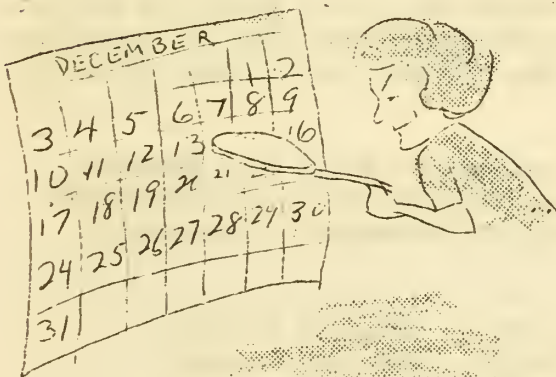 DECEMBER
1 2
3 4 5 6 7 8 9
10 11 12 13 16
17 18 19 20 21
24 25 26 27 28 29 30
31